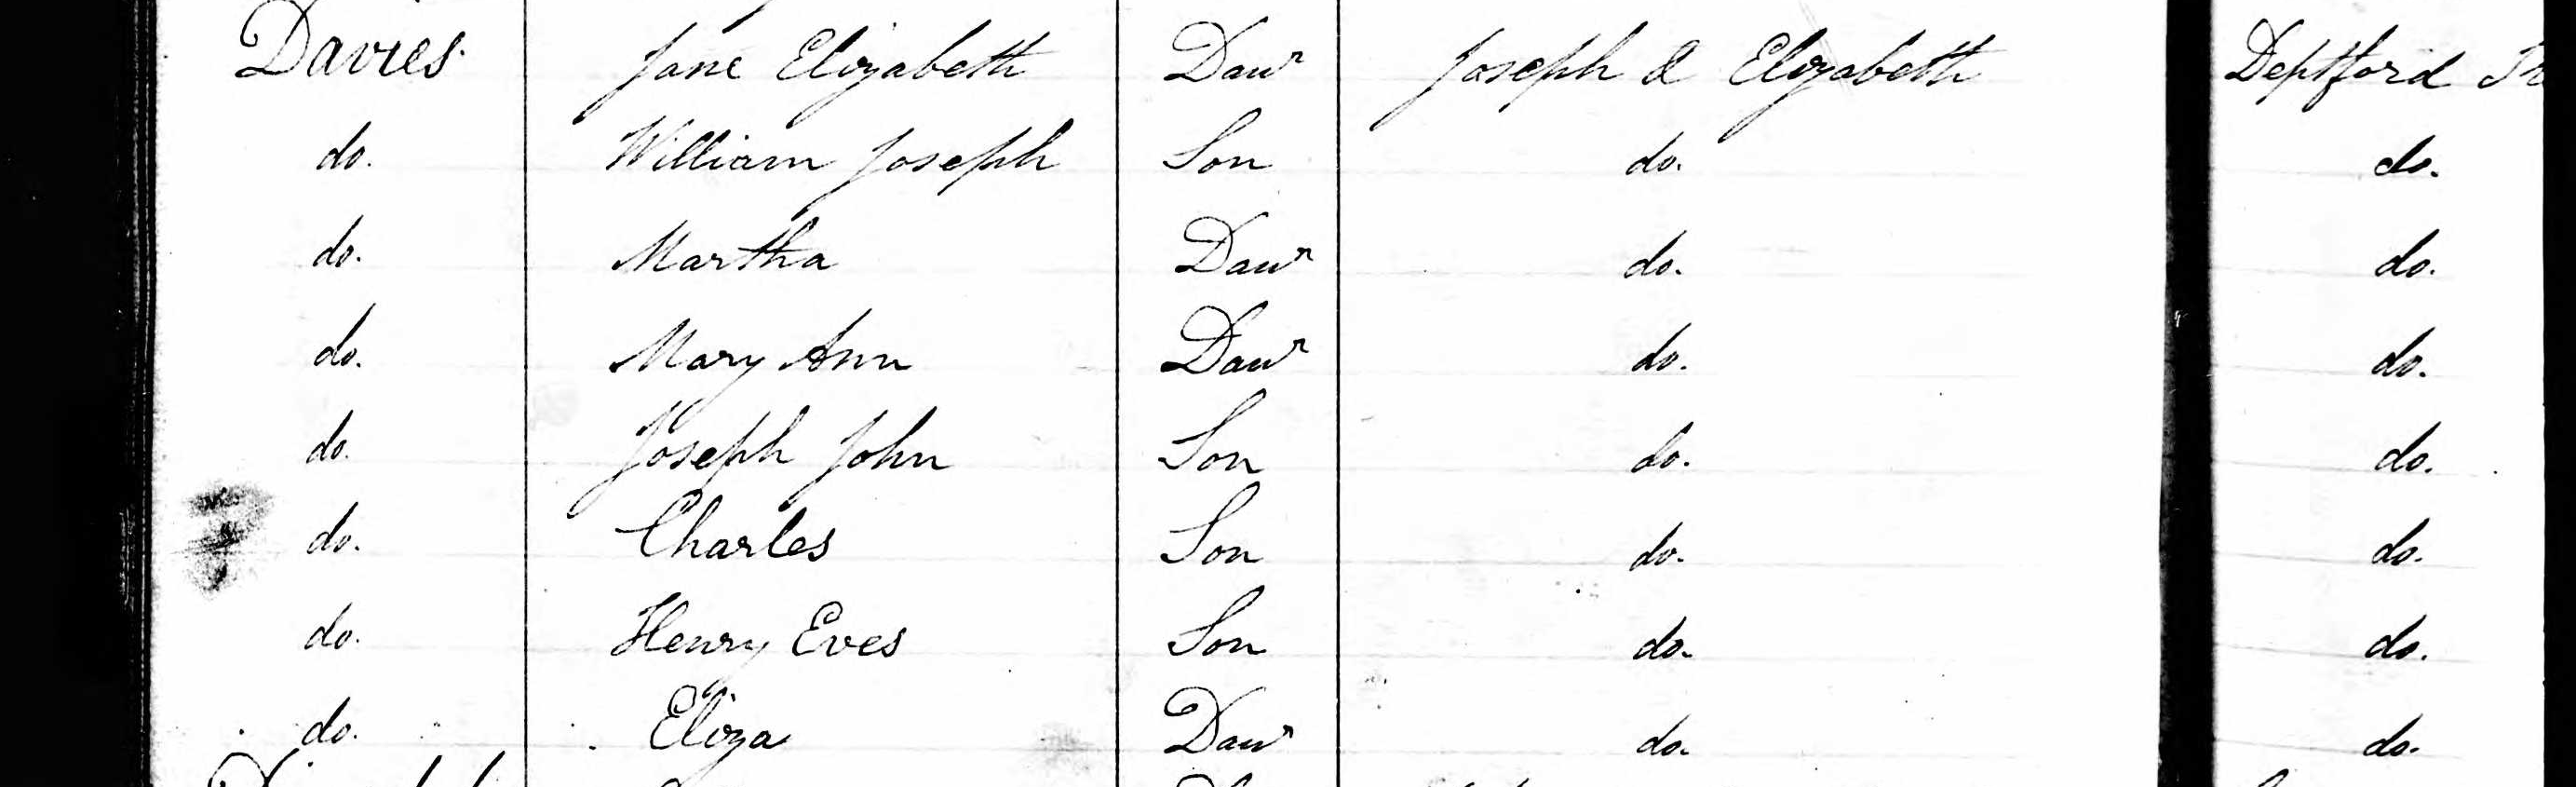 Davies Jane Elizabeth Daur Joseph & Elizabeth Deptford
do. William Joseph Son do. do.
do. Martha Daur do. do.
do. Mary Ann Daur do. do.
do. Joseph John Son do. do.
do. Charles Son do. do.
do. Henry Eves Son do. do.
do. Eliza Daur do. do.